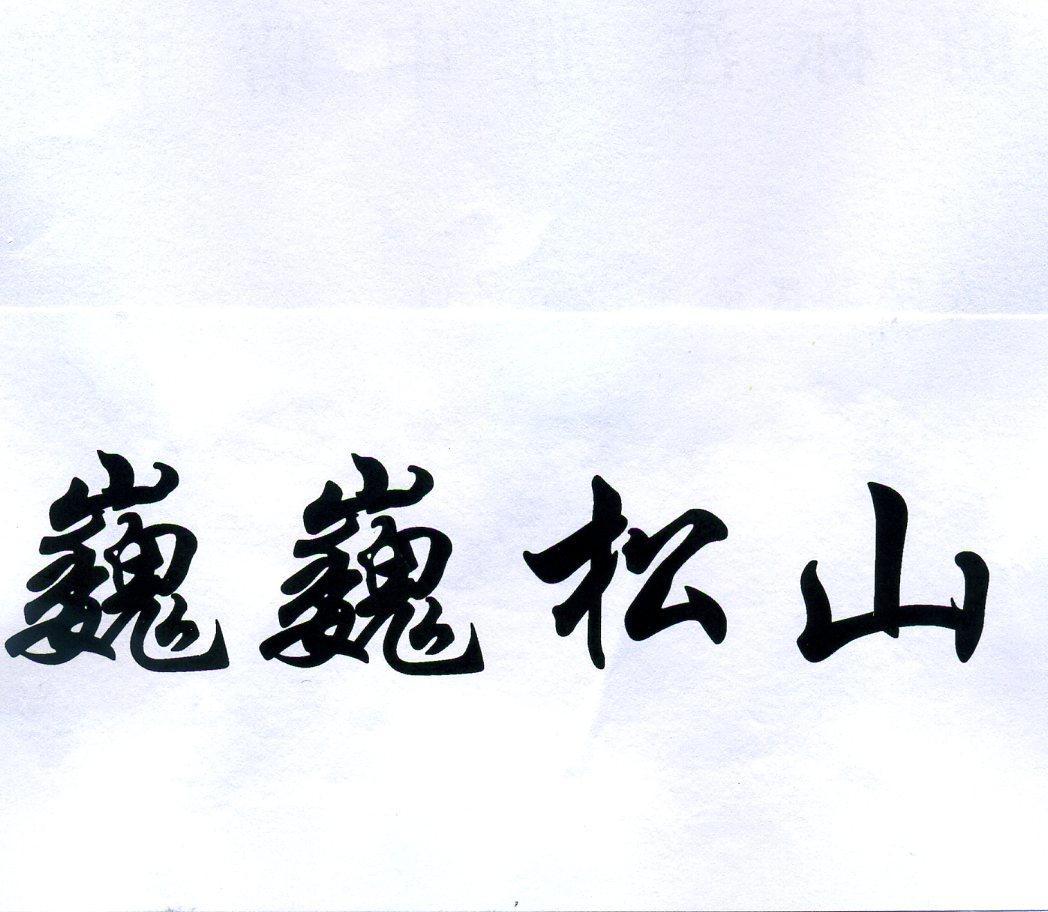 巍巍松山